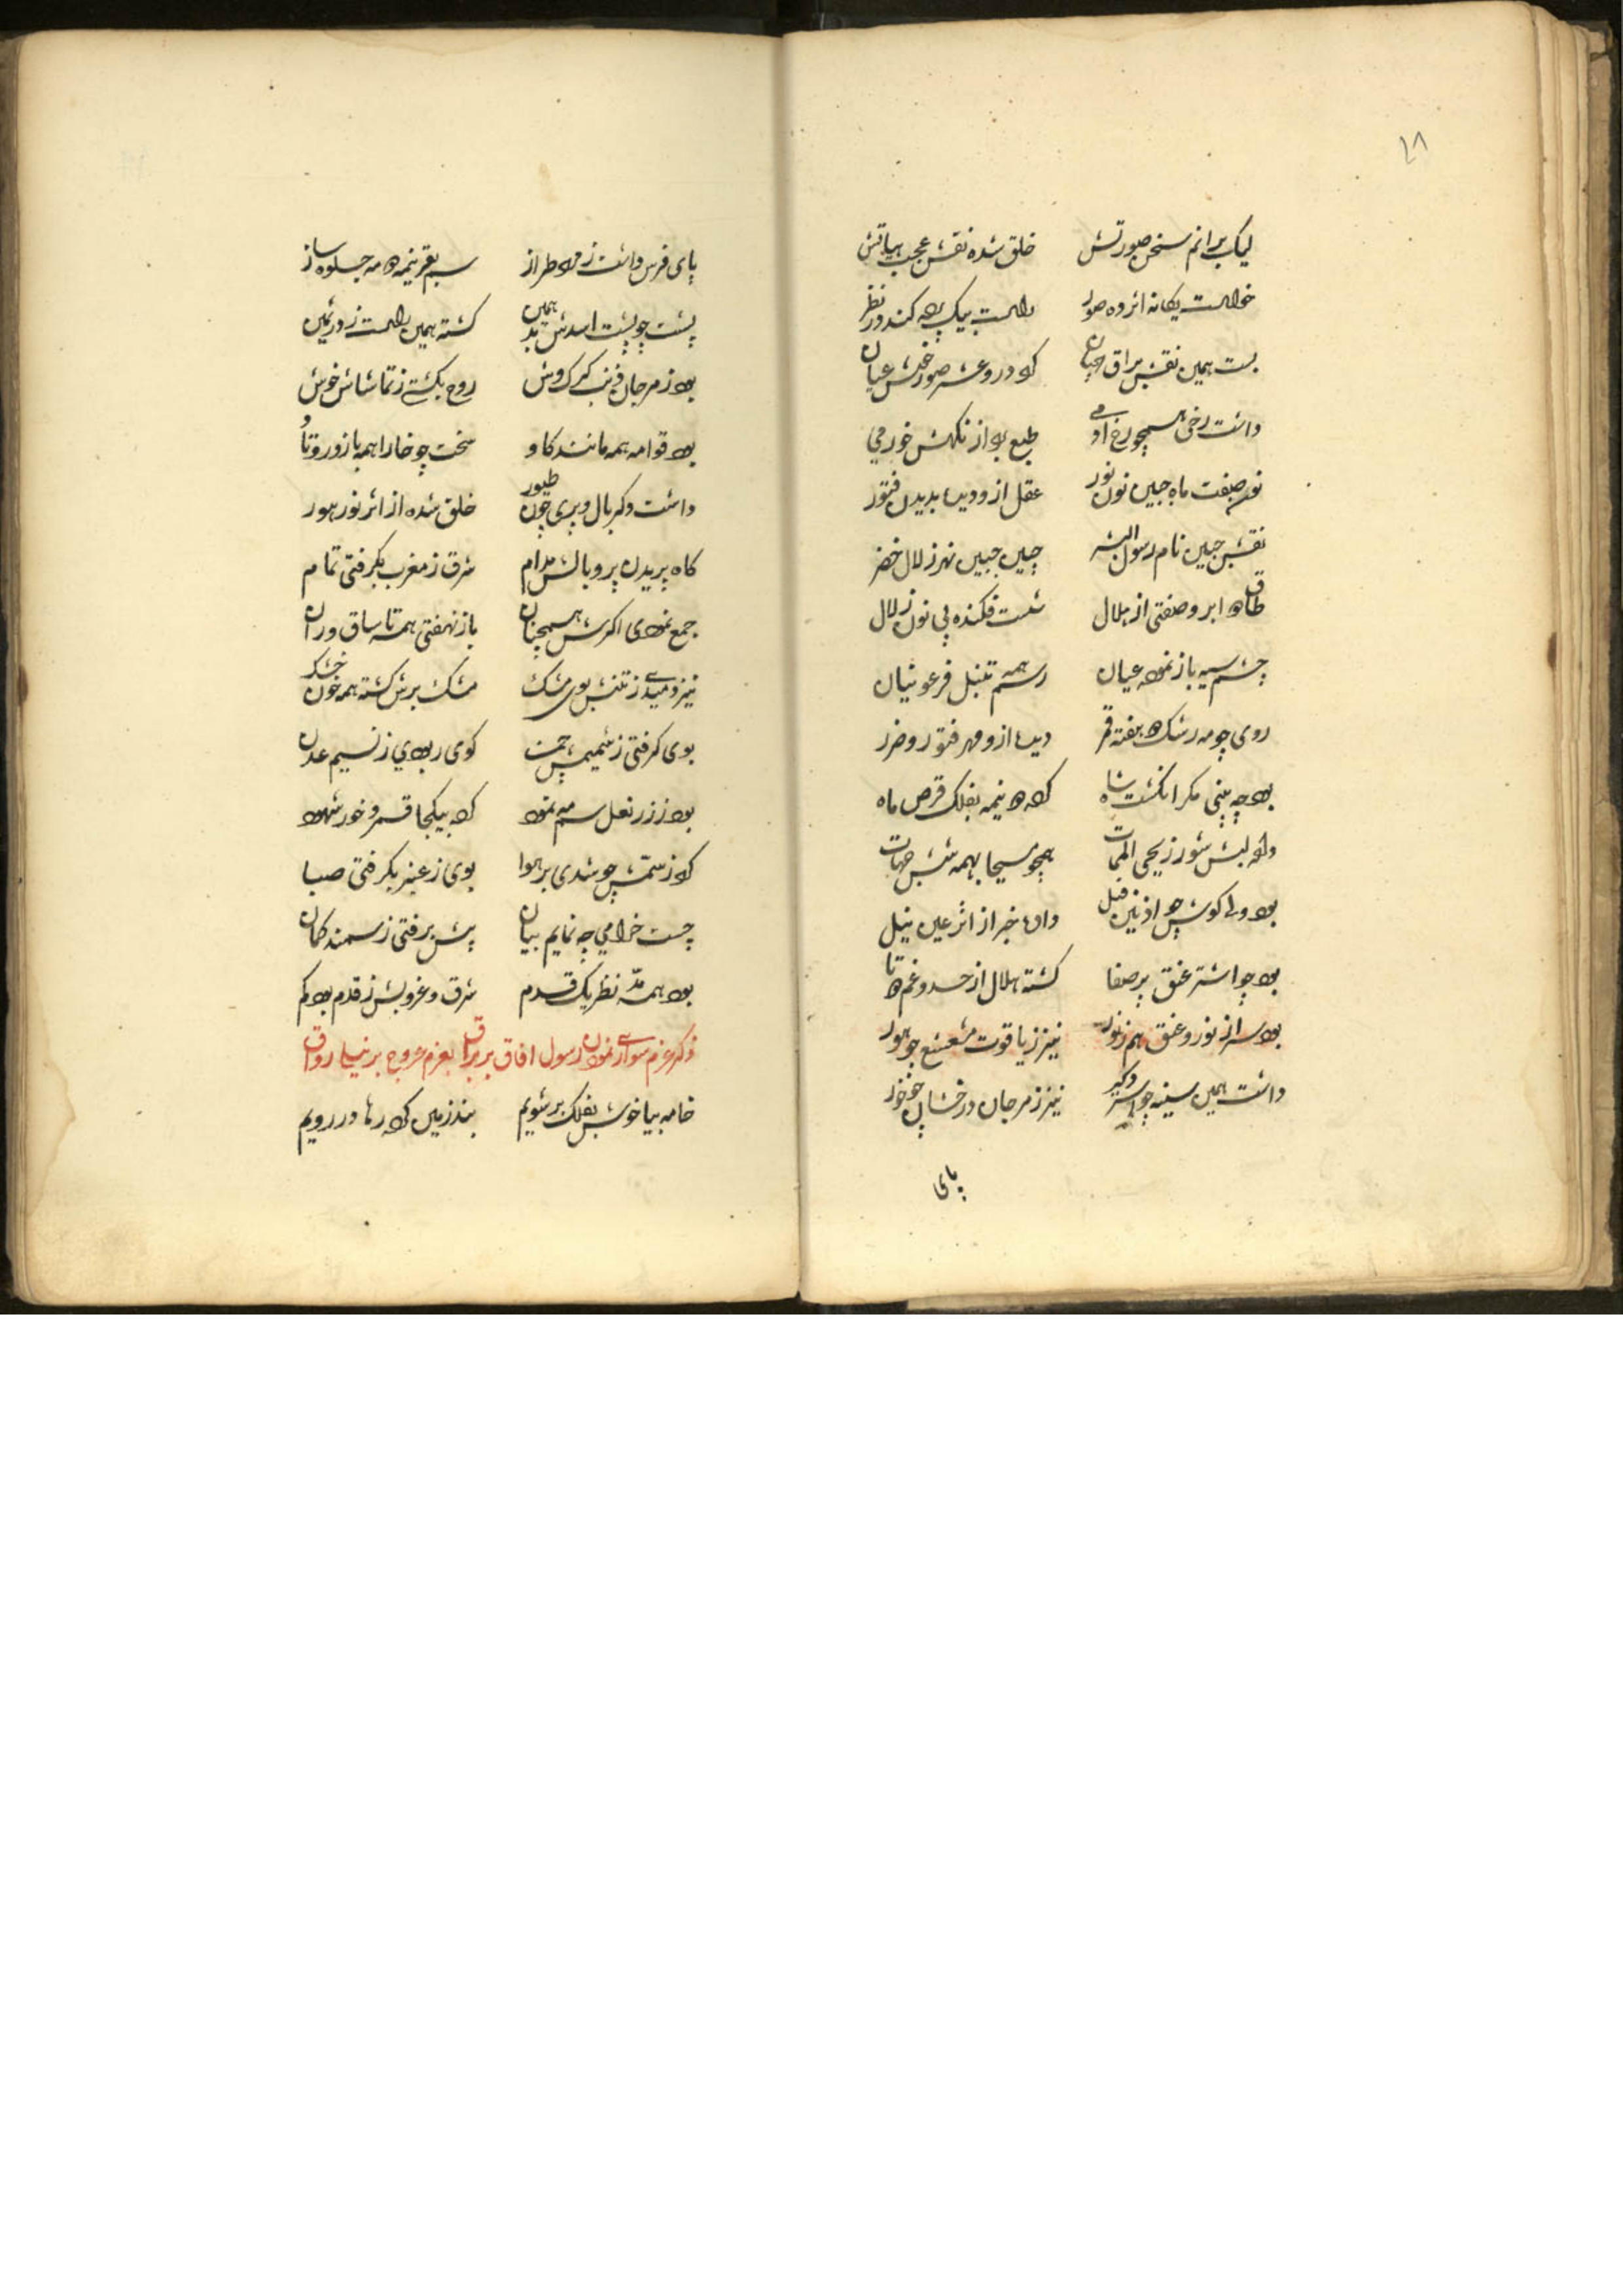 ۱۸
لیک برانم سخن صورتش خلق شده نقش عجب هیاتش
خواست یکانه اثر ده صور راست بیک پرده کند در نظر
بست همین نقش براق چنان که درو عشر صور شد عیان
داشت رخی همچو رخ ادمی طبع بد از نکهتش خورمی
نور صفت ماه جبین نون نور عقل ازو دید بدیدن فتور
نقش جبین نام رسول البشر چین جبین نهر زلال خضر
طاق دو ابرو صفتی از هلال شست فکنده پی نون زلال
چشم سیه باز نموده عیان رسم همه تنبل فرعونیان
روی چو مه رشک ده هفته قمر دید ازو مهر فتور و ضرر
بود چه بینی مکر انکشت شاه که دو نیمه بفلک قرص ماه
داد لبش شور ز یحیی الممات همچو مسیحا بهمه شش جهات
بود ولی کوش چو اذنین فیل داده خبر از اثر عین نیل
بود چو اشتر عنق پر صفا کشته هلال از حسد و غم دوتا
بود سر از نور و عنق هم ز نور نیز ز یاقوت مشعشع چو هور
داشت همین سینه چو استر دکر نیز ز مرجان درخشان چو خور
پای
پای فرس داشت ز مراد طراز سم بقر نیمه دو مه جلوه ساز
پشت چو پشت اسدش بد همین کشته همین راست ز در ثمین
بود ز مرجان ذنب کرکروش روح بکشتی ز تماشاش خوش
بود قوامه همه مانند کاو سخت چو خارا همه با زور و تاو
داشت دکر بال و پری چون طیور خلق شده از اثر نور هور
کاه پریدن پر و بالش مدام شرق ز مغرب بکرفتی تمام
جمع نمودی اکرش همچنان باز نهفتی همه تا ساق و ران
نیز دمیدی ز تنش بوی مشک مشک برش کشته همه خون خشک
بوی کرفتی ز شمیمش چمن کوی ربودی ز نسیم عدن
بود ز زر نعل سم نمود که بیکجا قمر و خور شهود
کرد ز سمش چو شدی بر هوا بوی ز عنبر بکرفتی صبا
چست خرامی چه نمایم بیان پیش برفتی ز سمند کمان
بود همه مد نظر یک قدم شرق و غروبش ز قدم بود کم
ذکر عزم سواری نمودن رسول افاق بر براق بعزم عروج بر نیلی رواق
خامه بیا خوش بفلک بر شویم بند زمین کرد رها در رویم